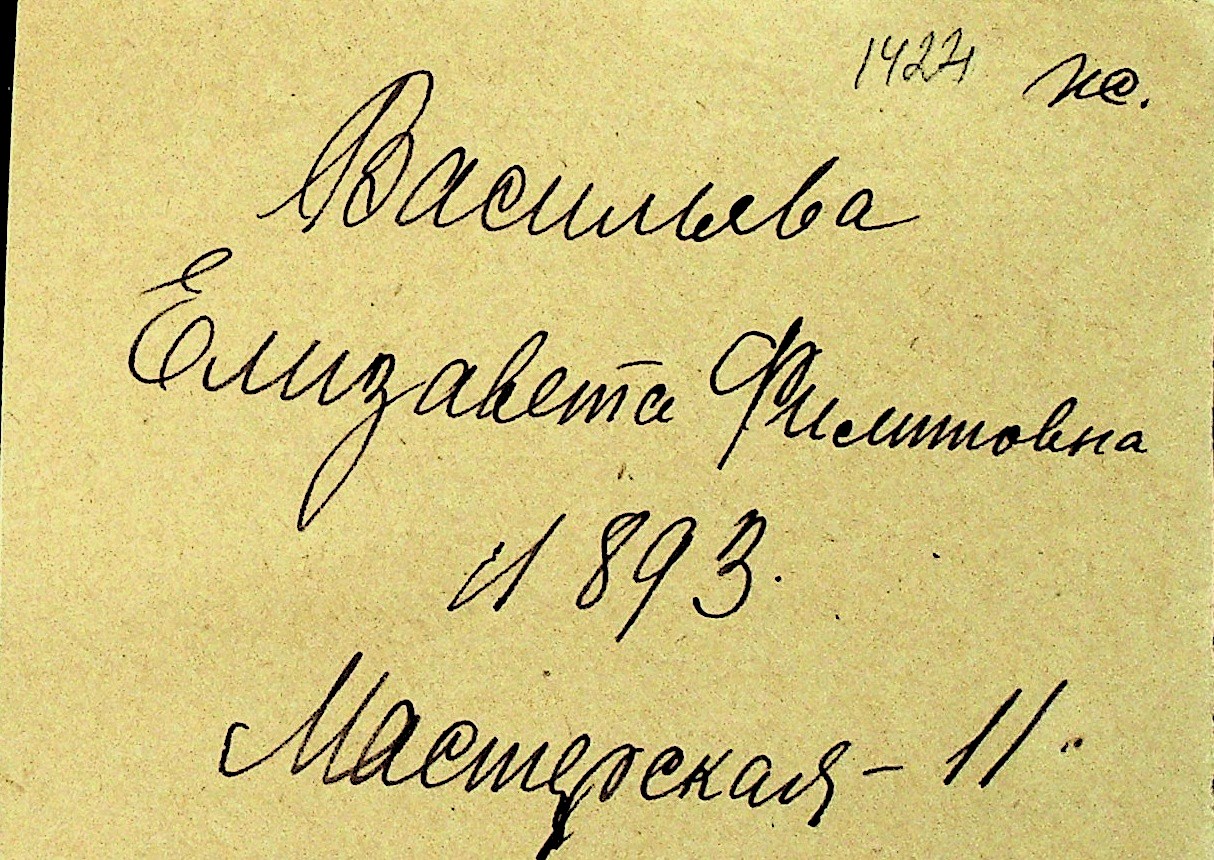 1424 не.
Васильева
Елизавета Филиповна
1893.
Мастерская – 11.